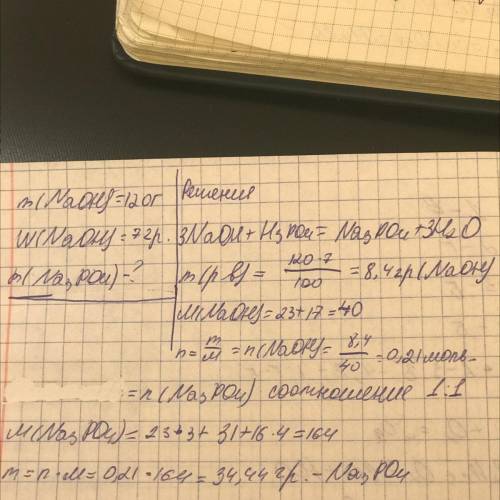 m(NaOH)=120г
Решения
W(NaOH)=7гр.
3NaOH+H₃PO₄=Na₃PO₄+3H₂O
m(Na₃PO₄)-?
m(рв)=120·7/100=8,4гр(NaOH)
M(NaOH)=23+17=40
n=m/M=n(NaOH)=8,4/40=0,21моль
=n(Na₃PO₄) соотношение 1:1
M(Na₃PO₄)=23+3+31+16·4=164
m=n·M=0,21·164=34,44гр.-Na₃PO₄